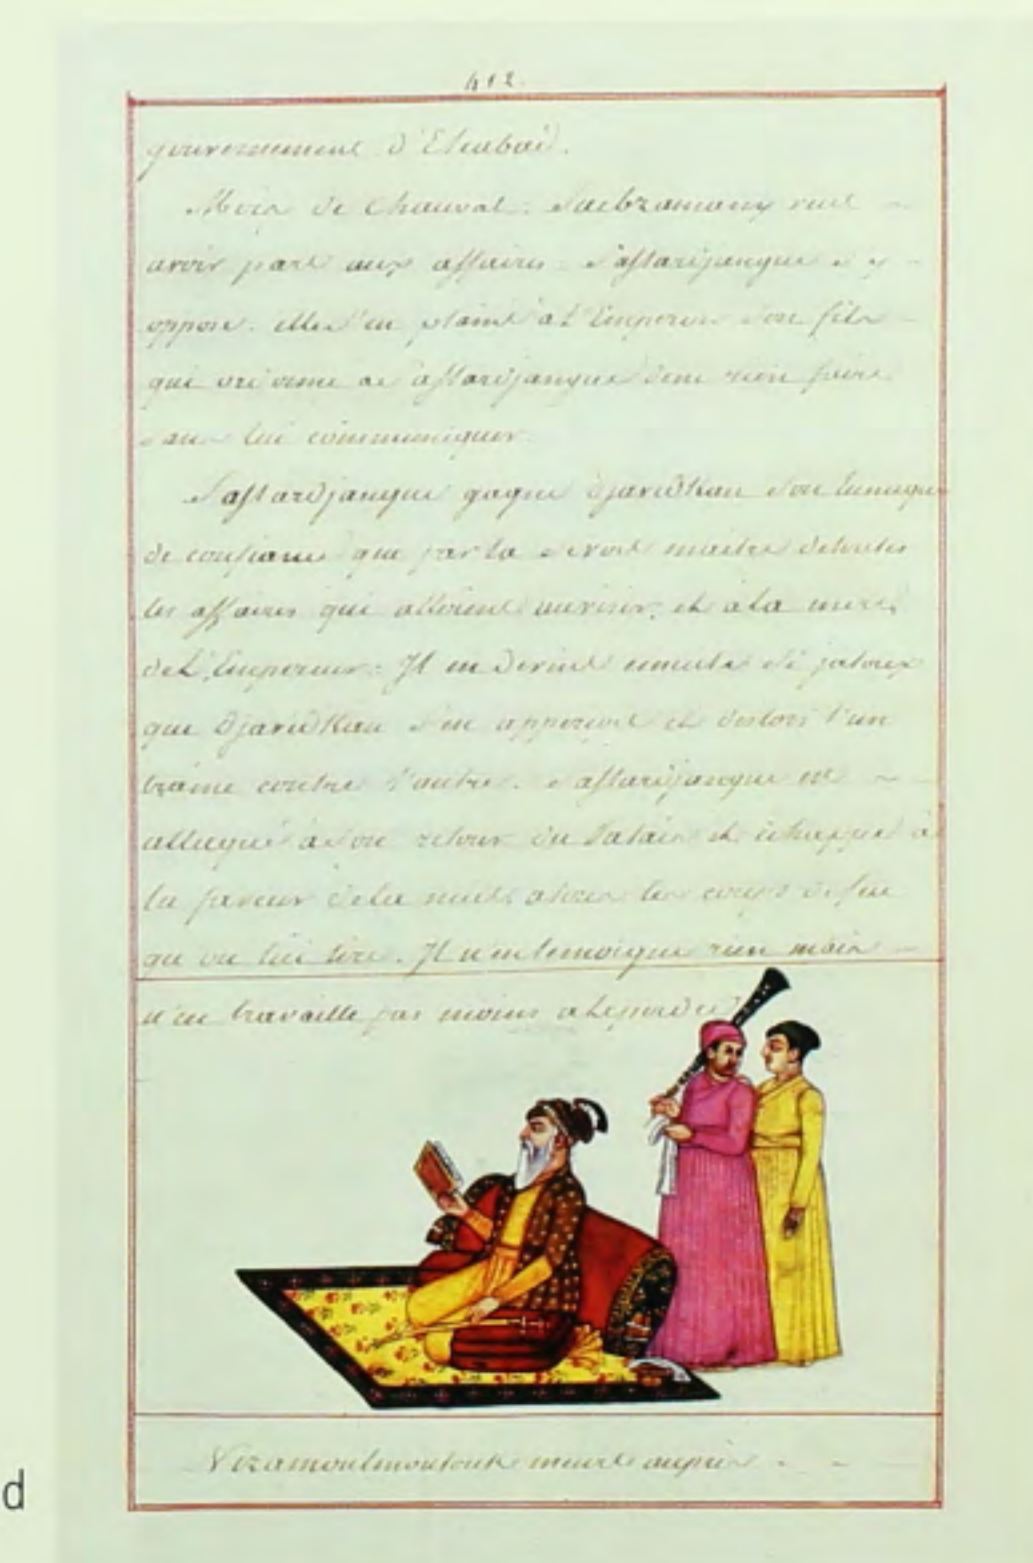 412.
gouvernement d'Eleabad.
Mois de Chauval. Saebzamany veut
avoir part aux affaires. Saftardjangue s'y
oppose. elle s'en plaint à L'Empereur son fils
qui ordonne a Saftardjangue de ne rien faire
sans lui communiquer.
Saftardjangue gagne Djavidkan son Eunuque
de confiance que par la seroit maitre detoutes
les affaires qui alloient au visir, et à la mere
deL'Empereur. Il en devint ensuite si jaloux
que Djavidkan s'en apperçoit et deslors l'un
trame contre l'autre. Saftardjangue est
attaqué à son retour du Palais et échappe à
la faveur dela nuit à tous les coups de feu
qu'on lui tire. Il n'en temoigne rien mais
n'en travaille pas moins a Leperdre.
Nizamoulmoulouk meurt auprès
d